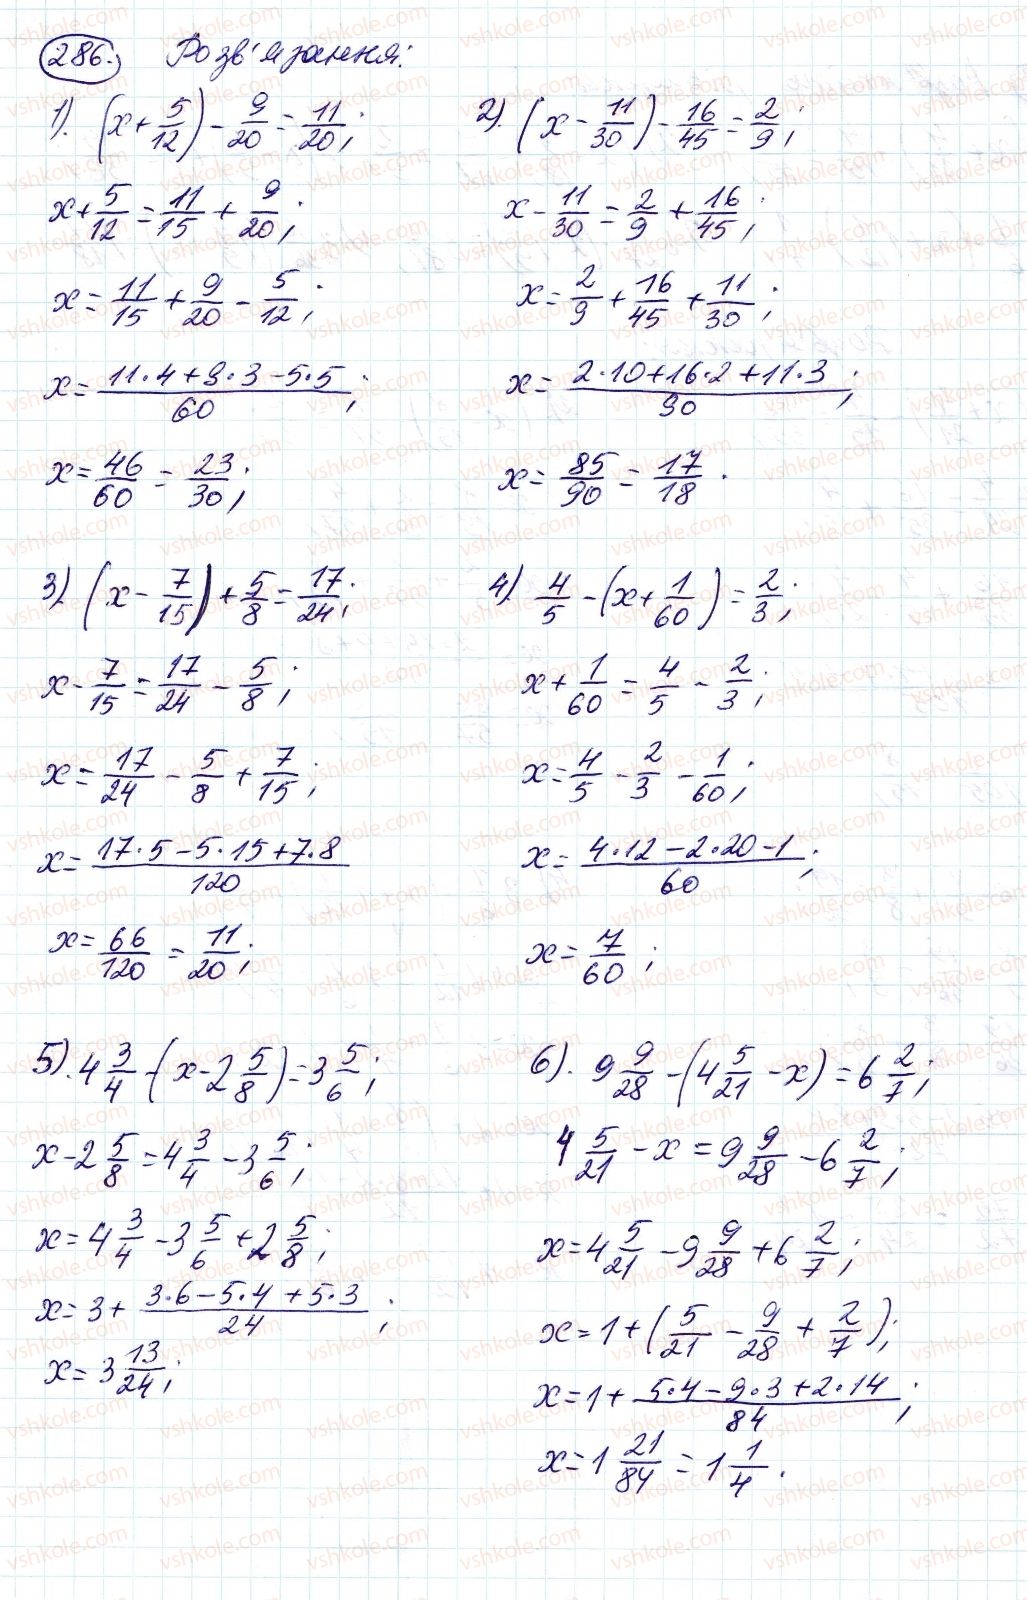 286. Розв'язання:
1). (x + 5/12) - 9/20 = 11/20;
x + 5/12 = 11/15 + 9/20;
x = 11/15 + 9/20 - 5/12;
x = (11·4 + 9·3 - 5·5)/60;
x = 46/60 = 23/30;
2). (x - 11/30) - 16/45 = 2/9;
x - 11/30 = 2/9 + 16/45;
x = 2/9 + 16/45 + 11/30;
x = (2·10 + 16·2 + 11·3)/90;
x = 85/90 = 17/18.
3) (x - 7/15) + 5/8 = 17/24;
x - 7/15 = 17/24 - 5/8;
x = 17/24 - 5/8 + 7/15;
x = (17·5 - 5·15 + 7·8)/120
x = 66/120 = 11/20;
4) 4/5 - (x + 1/60) = 2/3;
x + 1/60 = 4/5 - 2/3;
x = 4/5 - 2/3 - 1/60;
x = (4·12 - 2·20 - 1)/60;
x = 7/60;
5). 4 3/4 - (x - 2 5/8) = 3 5/6;
x - 2 5/8 = 4 3/4 - 3 5/6;
x = 4 3/4 - 3 5/6 + 2 5/8;
x = 3 + (3·6 - 5·4 + 5·3)/24;
x = 3 13/24;
6). 9 9/28 - (4 5/21 - x) = 6 2/7;
4 5/21 - x = 9 9/28 - 6 2/7;
x = 4 5/21 - 9 9/28 + 6 2/7;
x = 1 + (5/21 - 9/28 + 2/7);
x = 1 + (5·4 - 9·3 + 2·14)/84;
x = 1 21/84 = 1 1/4.
vshkole.com